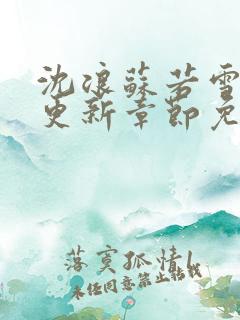 沈浪蘇若雪
更新章節免
落寞孤情l
未经同意禁止转载